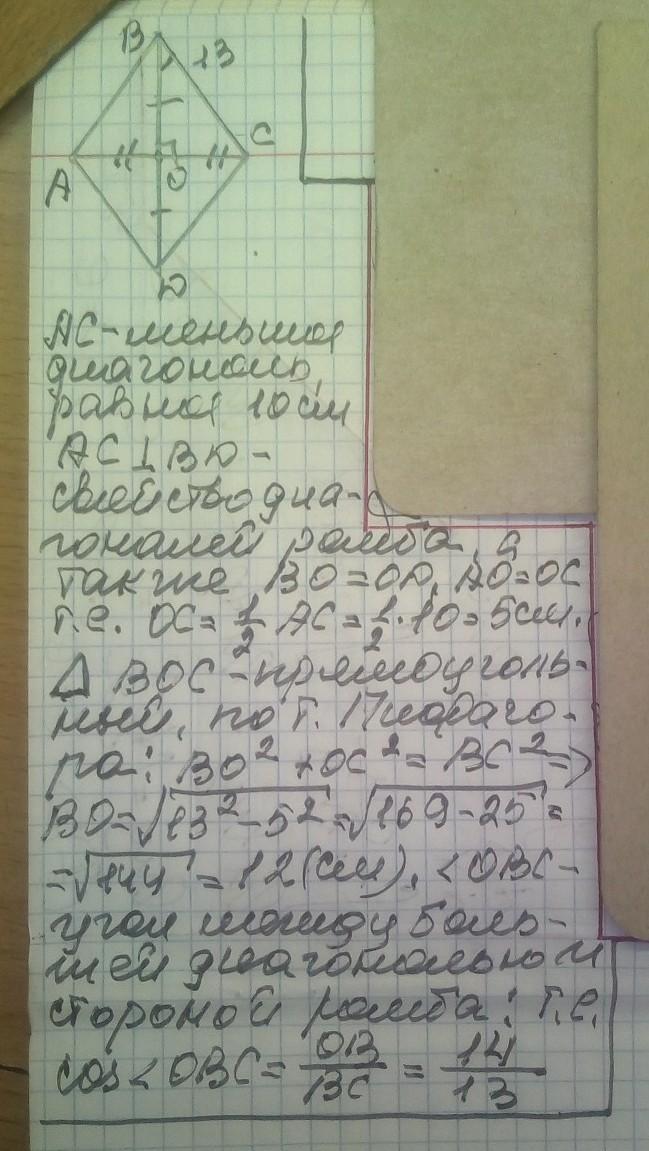 B 13
A O C
D
AC - меньшая
диагональ,
равная 10 см
AC ⊥ BD -
свойство диа-
гоналей ромба, а
также BO = OD, AO = OC
т.е. OC = 1/2 AC = 1/2 · 10 = 5 см.
Δ BOC - прямоуголь-
ный, по т. Пифаго-
ра: BO² + OC² = BC² =>
BO = √13² - 5² = √169 - 25 =
= √144 = 12 (см). < OBC -
угол между боль-
шей диагональю и
стороной ромба: т.е.
cos < OBC = OB/BC = 14/13